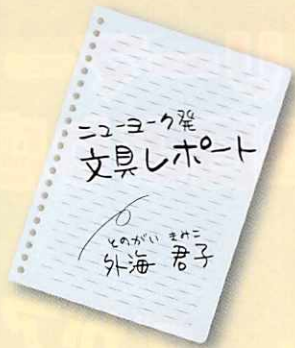 ニューヨーク発
文具レポート
とのがい きみこ
外海 君子